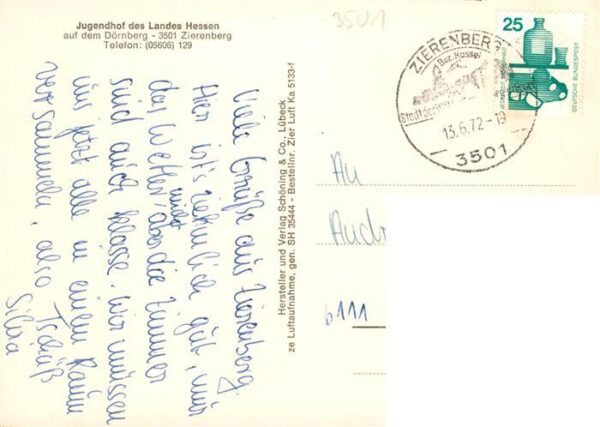 Jugendhof des Landes Hessen
auf dem Dörnberg - 3501 Zierenberg
Telefon: (05606) 129
3501
Viele Grüße aus Zierenberg.
Hier ist's ziemlich gut, nur
das Wetter nicht, aber die Zimmer
sind auch klasse. Wir müssen
uns jetzt alle in einem Raum
versammeln, also Tschüß
Silvia
Hersteller und Verlag Schöning & Co., Lübeck
ze Luftaufnahme, gen. SH 35444 - Bestellnr. Zier Luft Ka 5133-f
ZIERENBERG
Bez. Kassel
Stadt der
13.6.72 - 19
3501
25
DEUTSCHE BUNDESPOST
An
Andr
6111